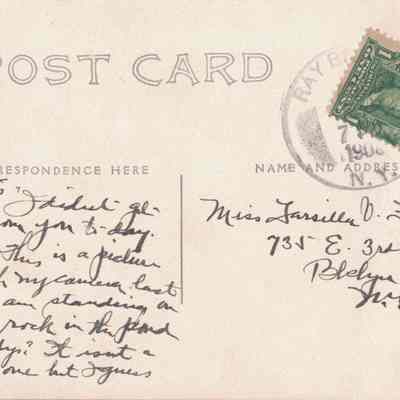 POST CARD
RAY B
7
1908
N.Y.
RESPONDENCE HERE
NAME AND ADDRES
I didnt ge-
om you to-day.
This is a picture
my camera last
am standing on
rock in the pond
It isnt a
one but I guess
Miss Tarsilla V.
735 E. 3rd
Bklyn